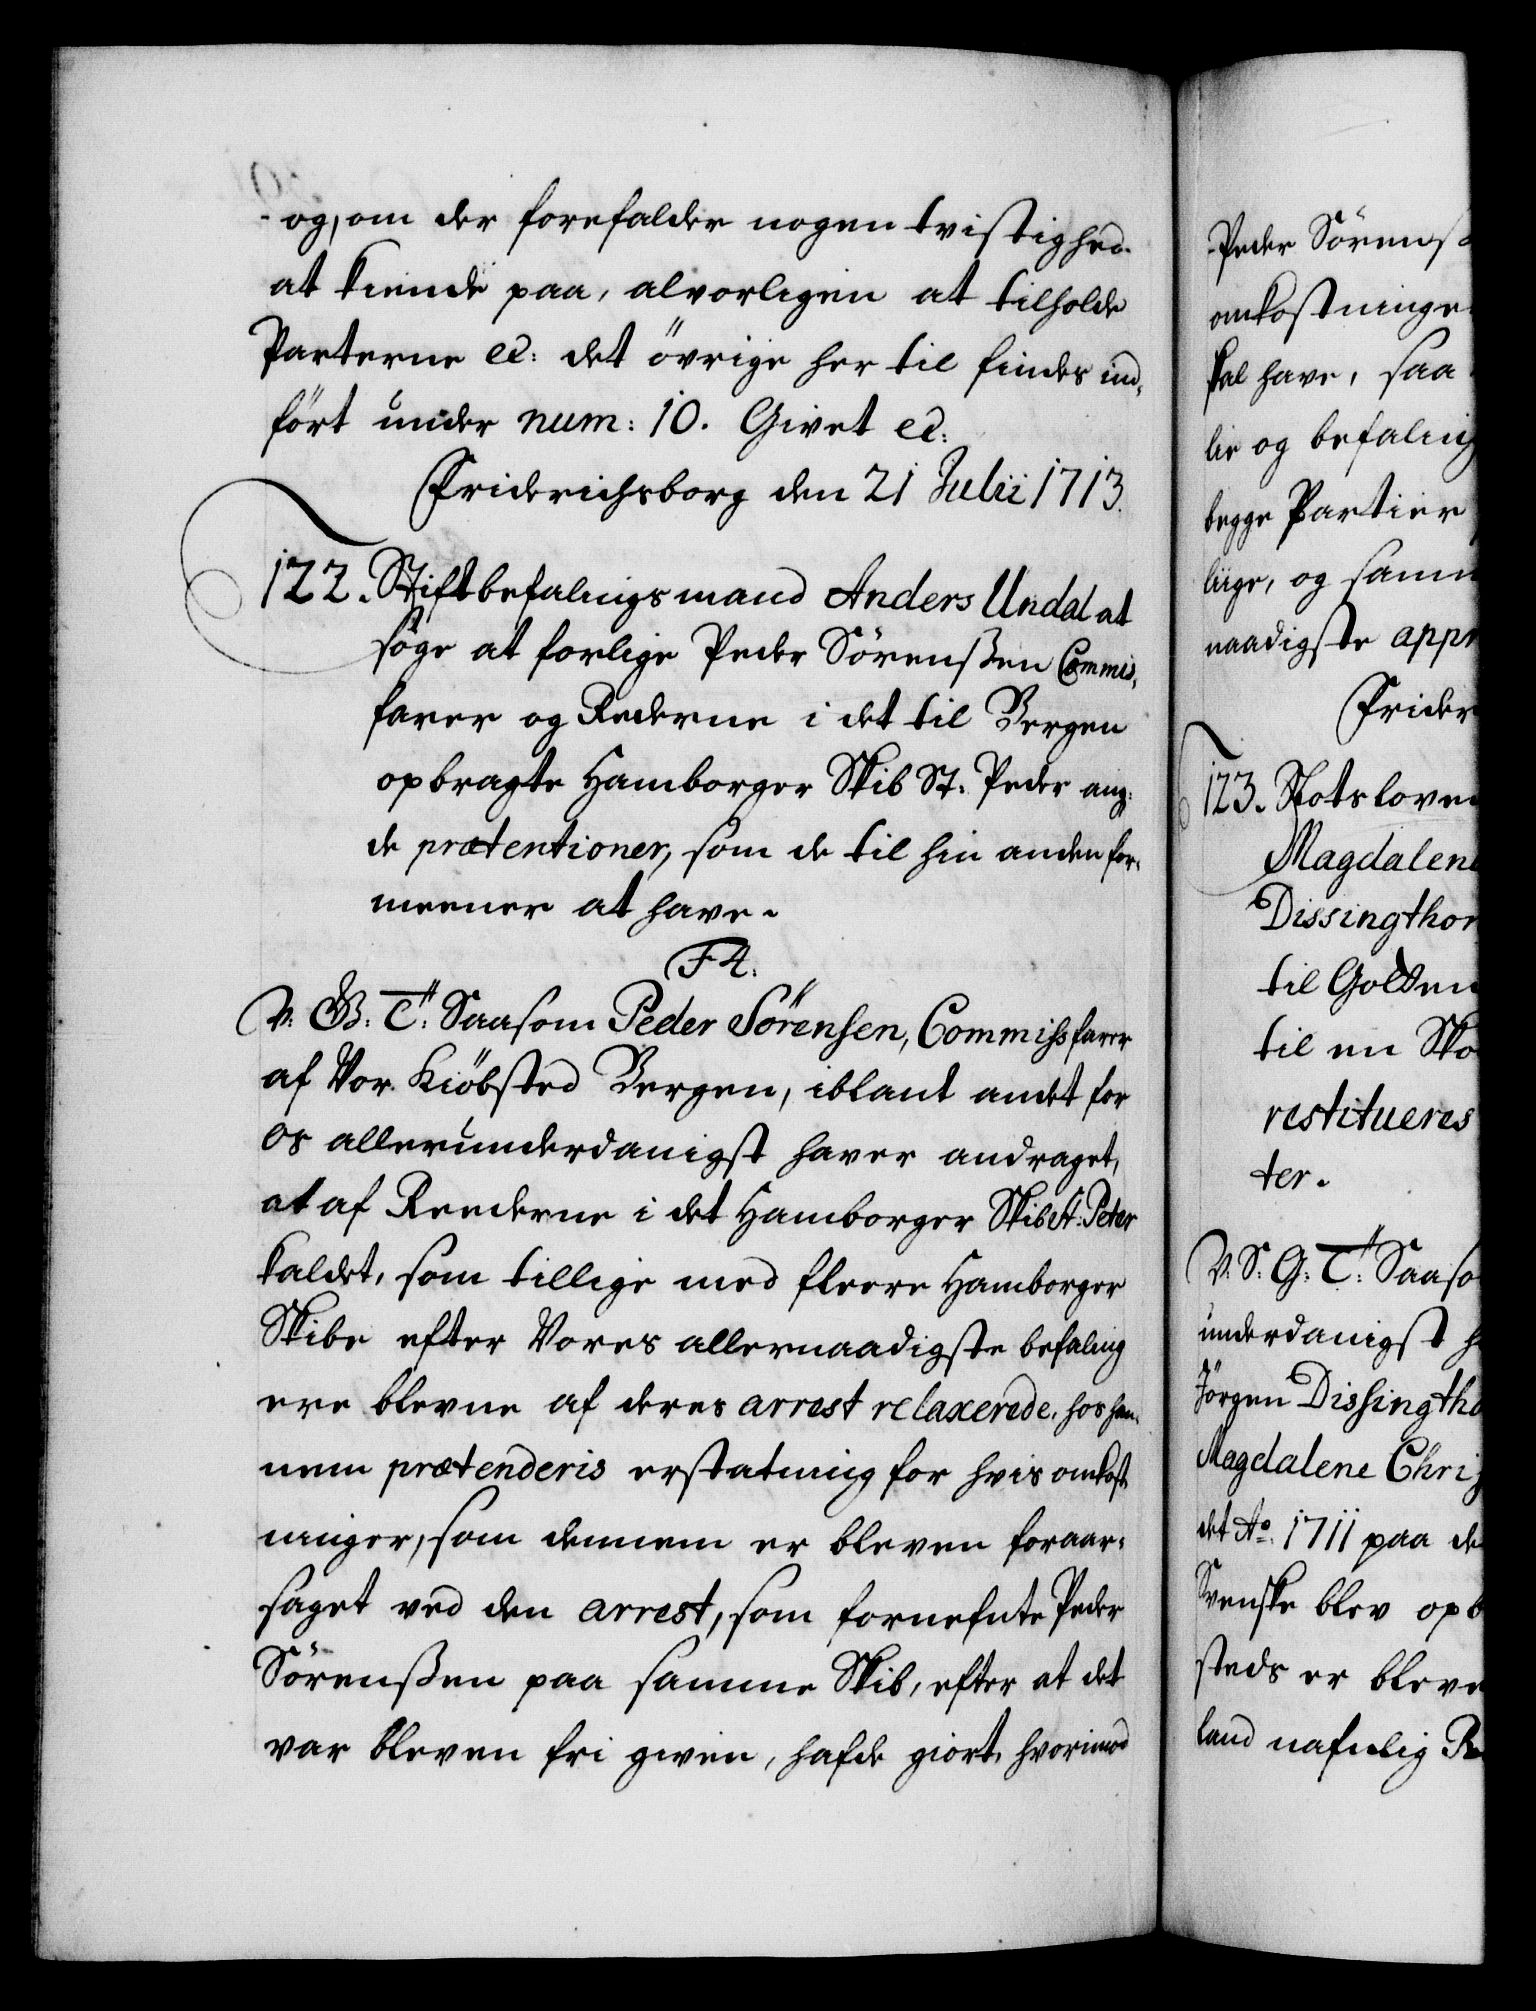 og, om der forefalder nogen tvistighed
at kiende paa, alvorligen at tilholde
Parterne ec: det öfrige her til findes ind-
fört under num: 10. Givet ec:
Friderichsborg den 21 Julii 1713.
122. Stiftbefalingsmand Anders Undal at
söge at forlige Peder Sörenßen Commis-
farer og Rederne i det til Bergen
opbragte Hamborger Skib St. Peder ang:
de prætentioner, som de til hin anden for-
meener at have.
F4.
V. G. T: Saasom Peder Sörensen, Commissfarer
af Vor Kiöbsted Bergen, iblant andet for
os allerunderdanigst haver andraget,
at af Reederne i det Hamborger Skib St. Peter
kaldet, som tillige med fleere Hamborger
Skibe efter Vores allernaadigste befaling
ere blevne af deres arrest relaxerede, hos han-
nem prætenderis erstatning for hvis omkost-
ninger, som dennem er bleven foraar-
saget ved den arrest, som fornefnte Peder
Sörenßen paa samme Skib, efter at det
var bleven fri given, hafde giort, hvorimod
Peder Sörenß
omkostninge
skal have, saa
lie og befaling
begge Partier
liige, og samm
naadigste appr
Frider
123. Slotsloven
Magdalene
Dissingthor
til Golden
til en Sko
restitueres
ter.
V. S. G. T: Saaso
underdanigst h
Jörgen Dissingtho
Magdalene Chri
det Ao. 1711 paa de
Svenske blev opb
steds er bleve
land nafnlig R